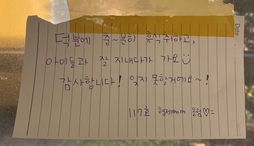 덕분에 충~분히 휴식 취하고,
아이들과 잘 지내다가 가요
감사합니다! 잊지 못할거예요~!
117호